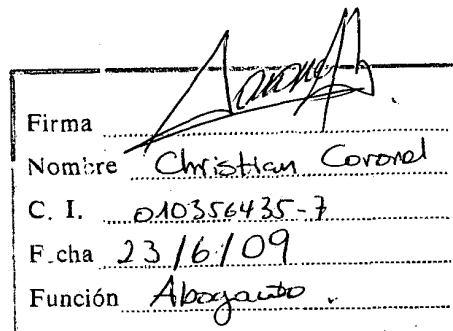 Firma
Nombre Christian Coronel
C. I. 010356435-7
F cha 23/6/09
Función